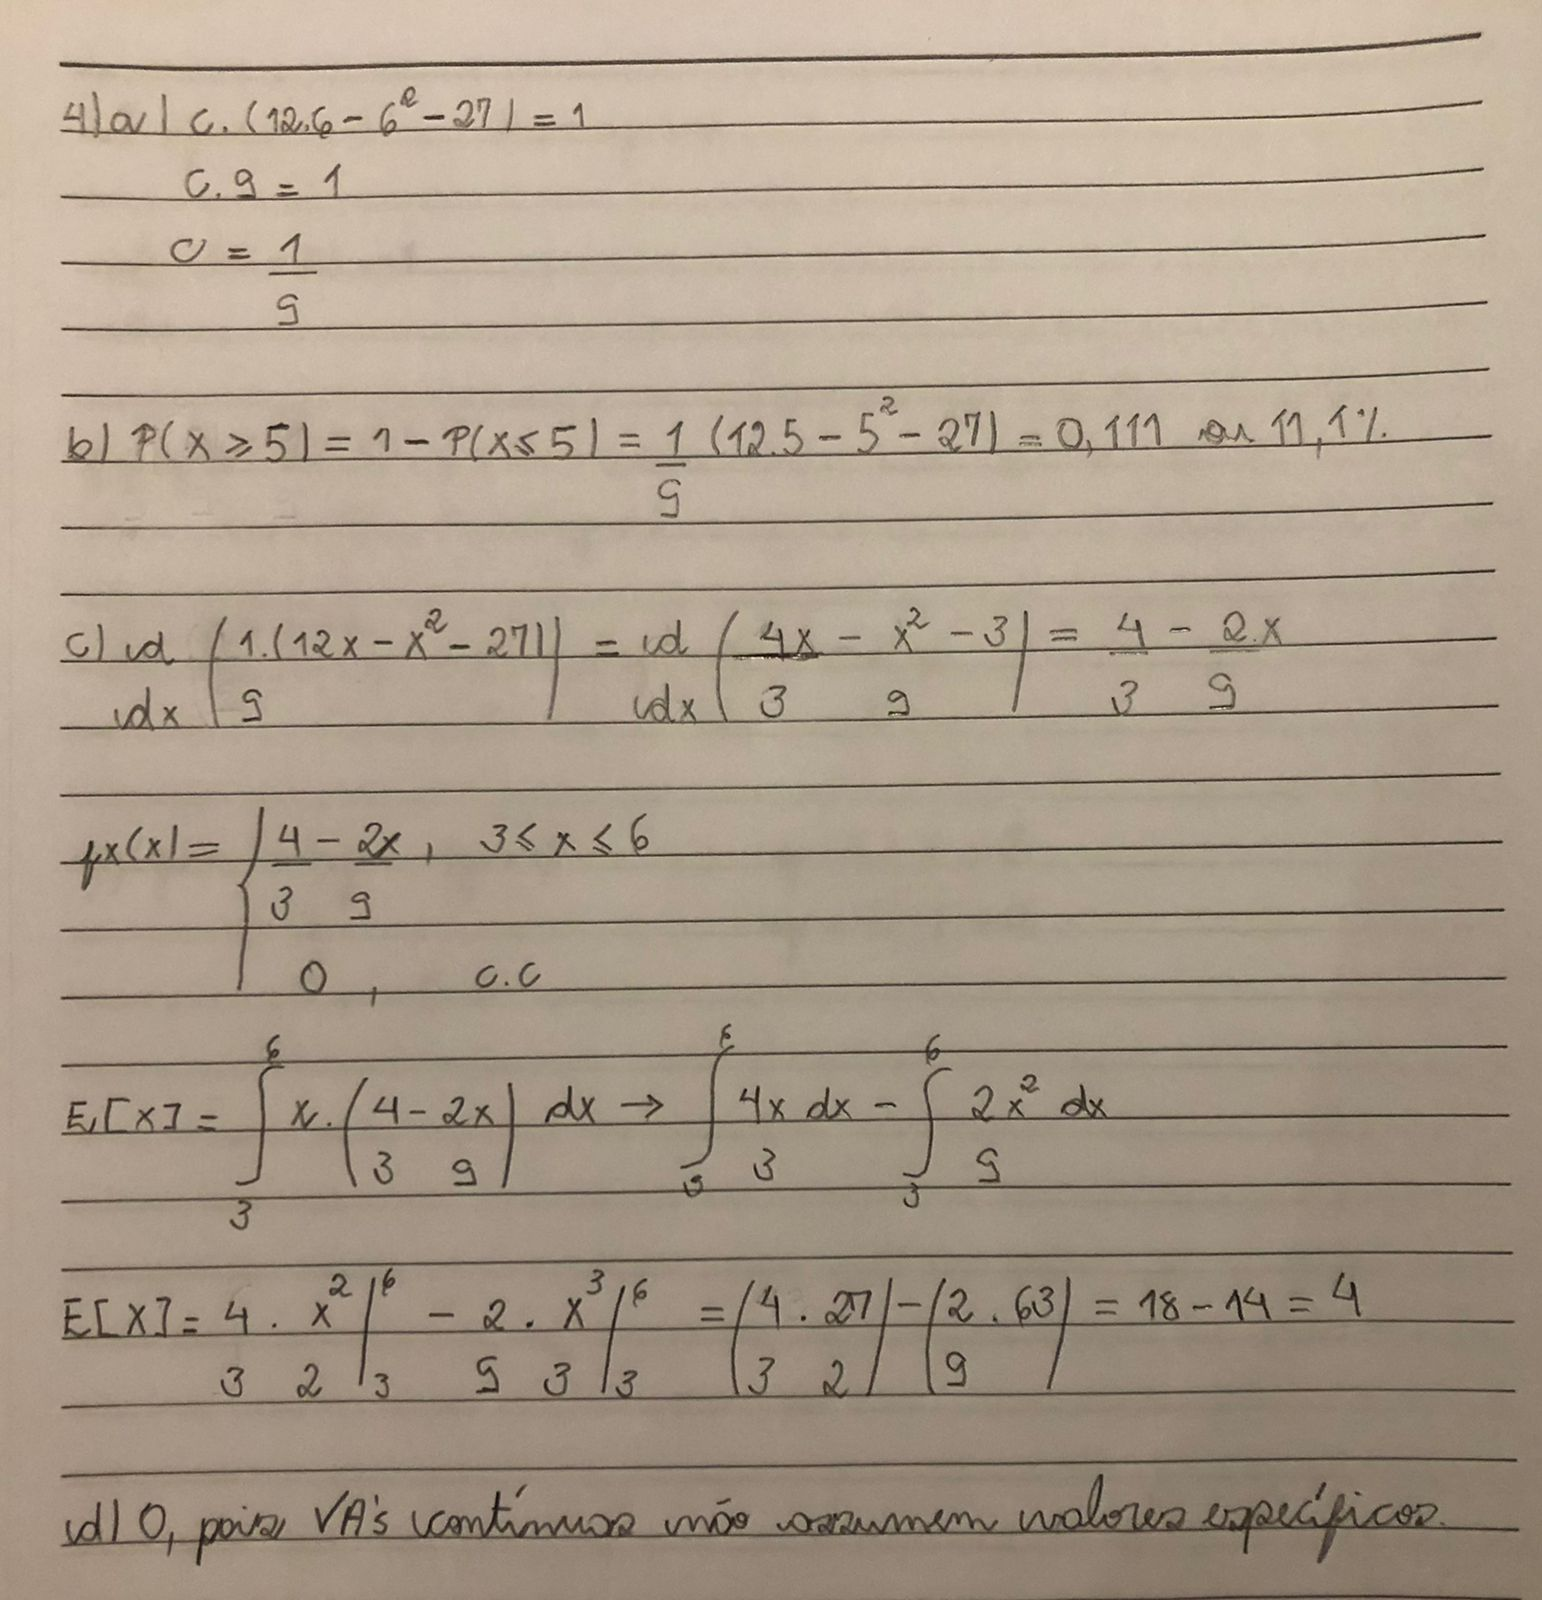 4)a) c.(12.6 - 6² - 27) = 1
c.9 = 1
c = 1/9
b) P(x ≥ 5) = 1 - P(x ≤ 5) = 1/9 (12.5 - 5² - 27) = 0,111 ou 11,1%
c) d/dx (1/9.(12x - x² - 27)) = d/dx (4x/3 - x²/9 - 3) = 4/3 - 2x/9
fx(x) = { 4/3 - 2x/9, 3 ≤ x ≤ 6
0, c.c
E[X] = ∫₃⁶ x.(4/3 - 2x/9) dx → ∫₃⁶ 4x/3 dx - ∫₃⁶ 2x²/9 dx
E[X] = 4/3 . x²/2 |₃⁶ - 2/9 . x³/3 |₃⁶ = (4/3 . 27/2) - (2/9 . 63) = 18 - 14 = 4
d) 0, pois VA's contínuas não assumem valores específicos.